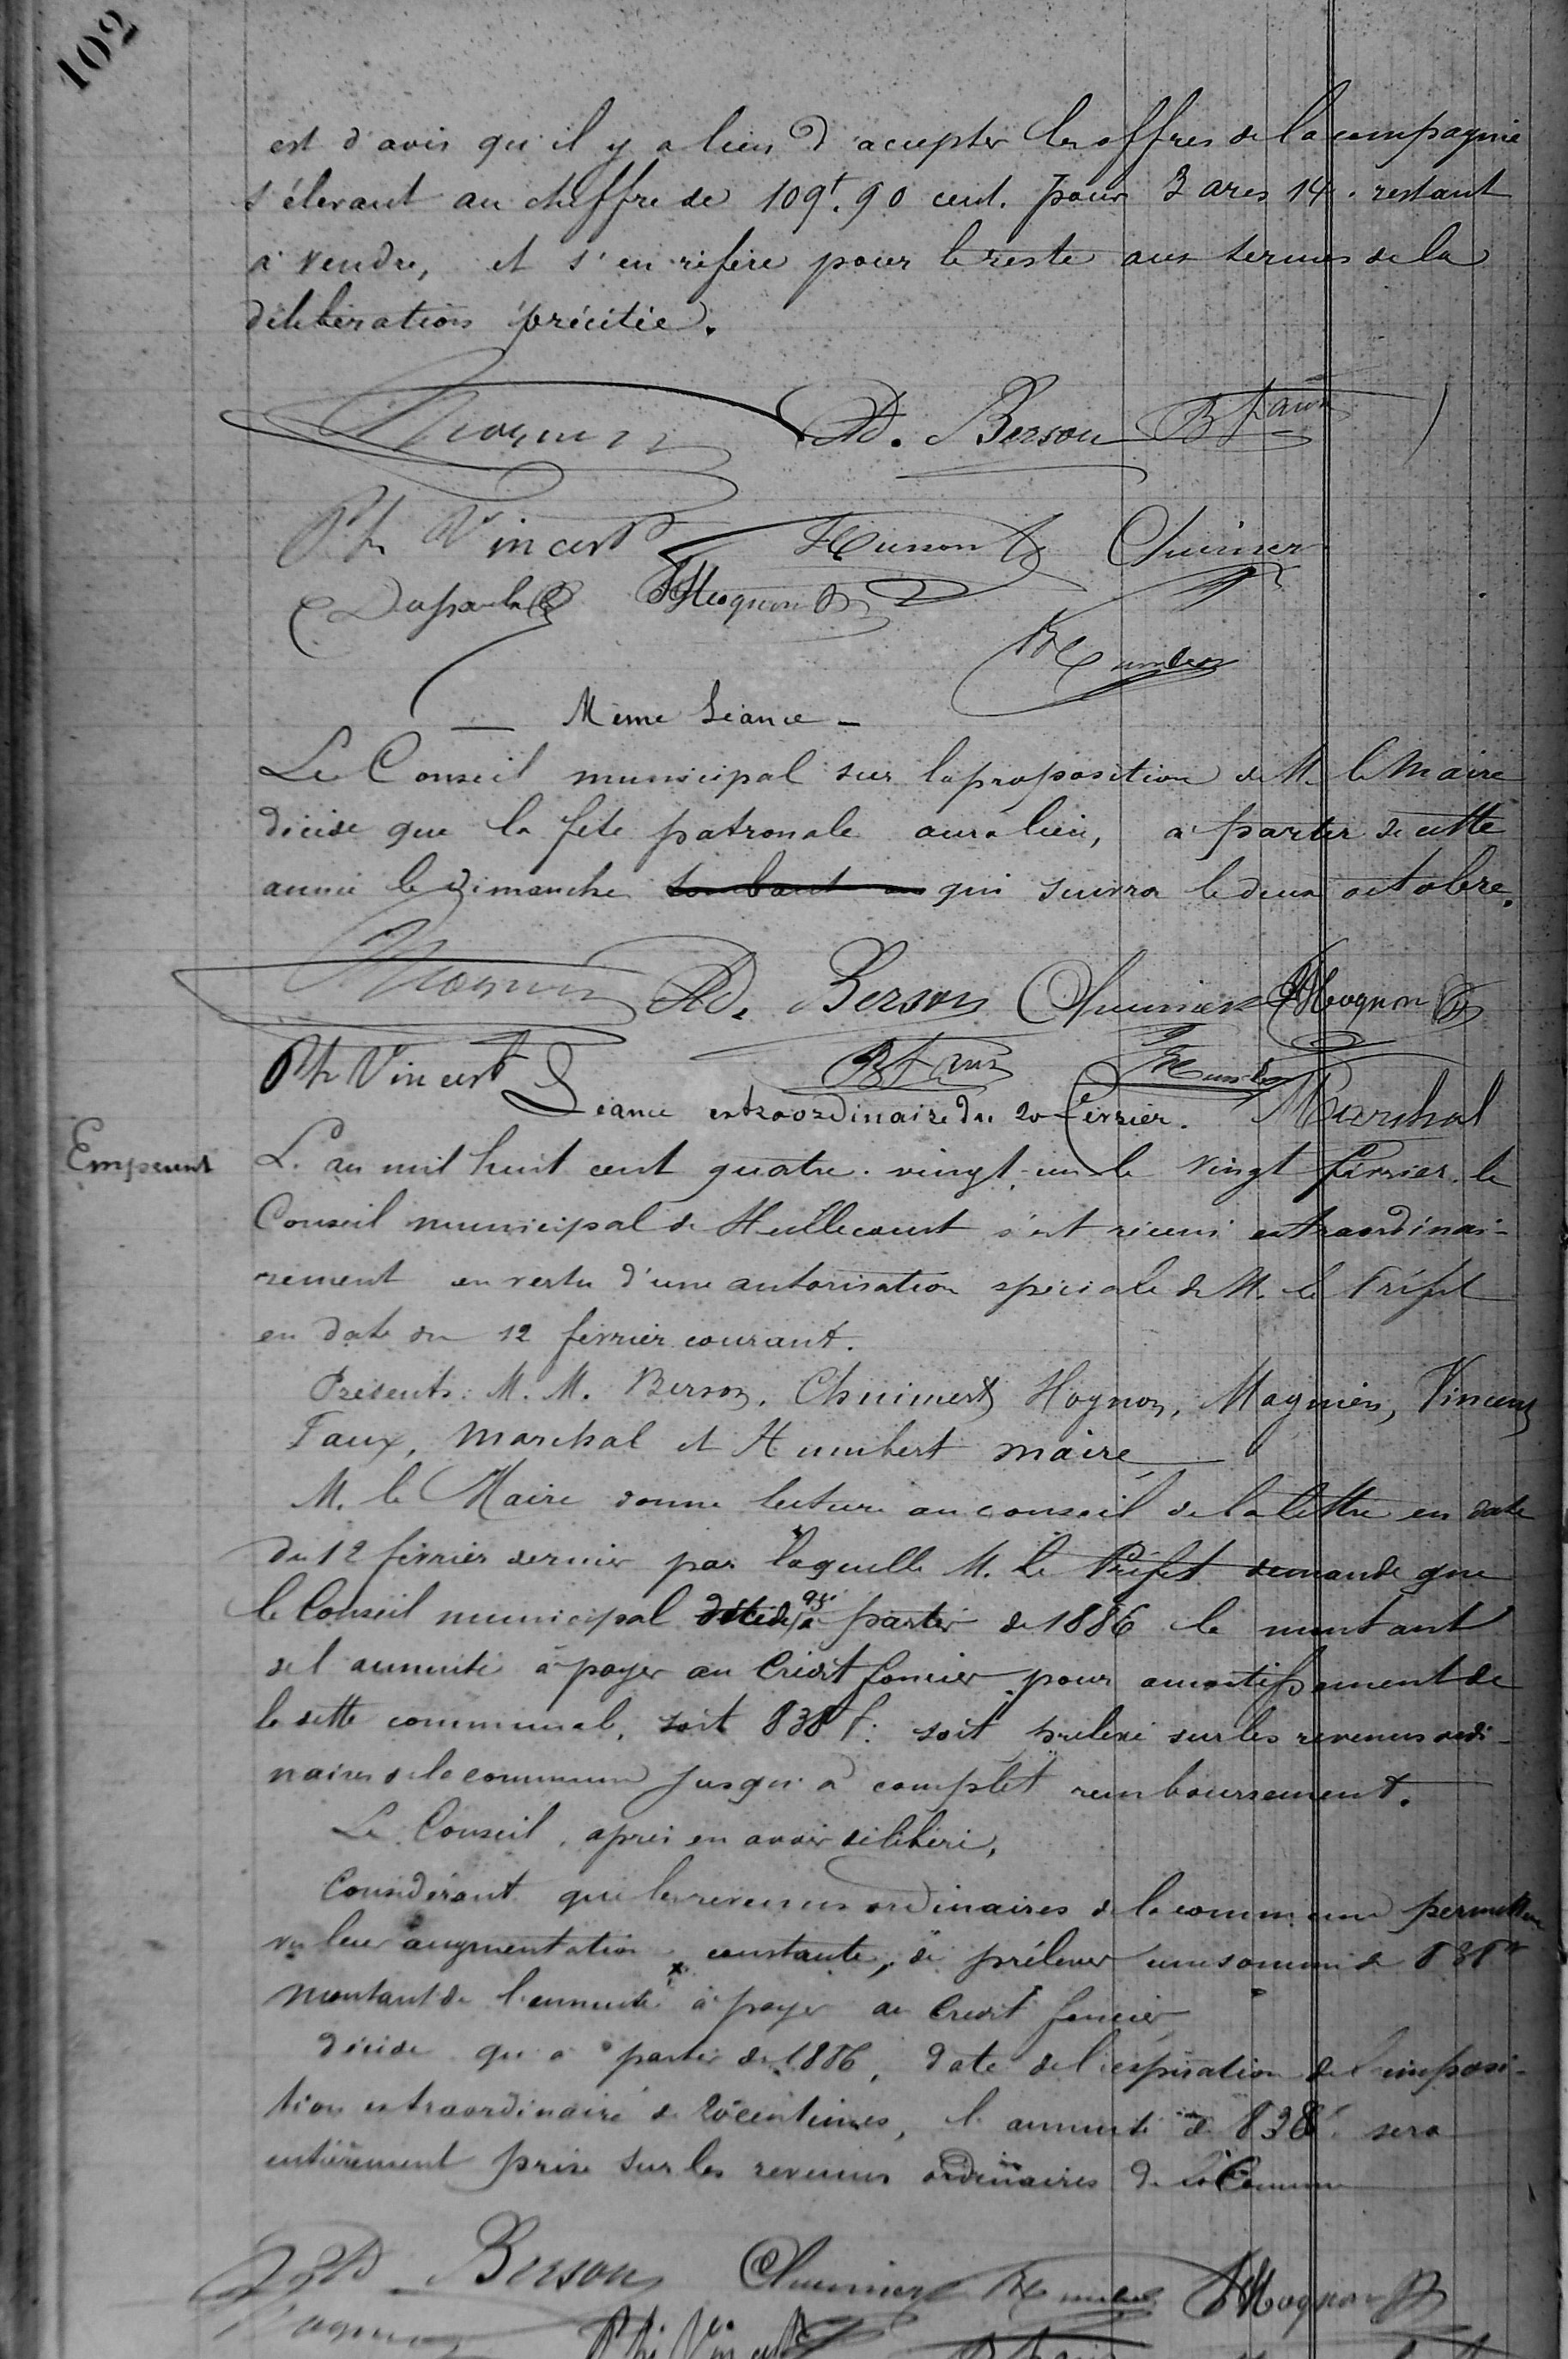 102
est d'avis qu'il y a lieu d'accepter les offres de la compagnie
s'élevant au chiffre de 109f. 90 cent. pour 3 ares 14. restant
à vendre, et s'en réfère pour le reste aux termes de la
délibération précitée.
Magnien Ad. Berson B Faux
Ph Vincent Husson Chuimer
Hognon
Humbert
— Même Séance —
Le Conseil municipal sur la proposition de M. le Maire
décide que la fête patronale aura lieu, à partir de cette
année le dimanche tombant qui suivra le deux octobre.
Magnien Ad. Berson Chuimer Hognon
Ph Vincent B Faux Humbert
Séance extraordinaire du 20 février. Marchal
Emprunt
L'an mil huit cent quatre-vingt-un le vingt février, le
Conseil municipal de Heillecourt s'est réuni extraordinai-
rement en vertu d'une autorisation spéciale de M. le Préfet
en date du 12 février courant.
Présents: M. M. Berson, Chuimert Hognon, Magnien, Vincent
Faux, Marchal et Humbert maire
M. le Maire donne lecture au conseil de la lettre en date
du 12 février dernier par laquelle M. le Préfet demande que
le Conseil municipal décide qu'à partir de 1886 le montant
de l'annuité à payer au Crédit foncier pour amortissement de
la dette communale, soit 838 f. soit prélevé sur les revenus ordi-
naires de la commune jusqu'à complet remboursement.
Le Conseil, après en avoir délibéré,
Considérant que les revenus ordinaires de la commune permettent
vu leur augmentation constante, de prélever une somme de 838f
montant de l'annuité à payer au Crédit foncier
décide qu'à partir de 1886, date de l'expiration de l'imposi-
tion extraordinaire de 20 centimes, l'annuité de 838f sera
entièrement prise sur les revenus ordinaires de la Commune
Ad. Berson Chuimer Humbert Hognon
Magnien Ph Vincent B Faux